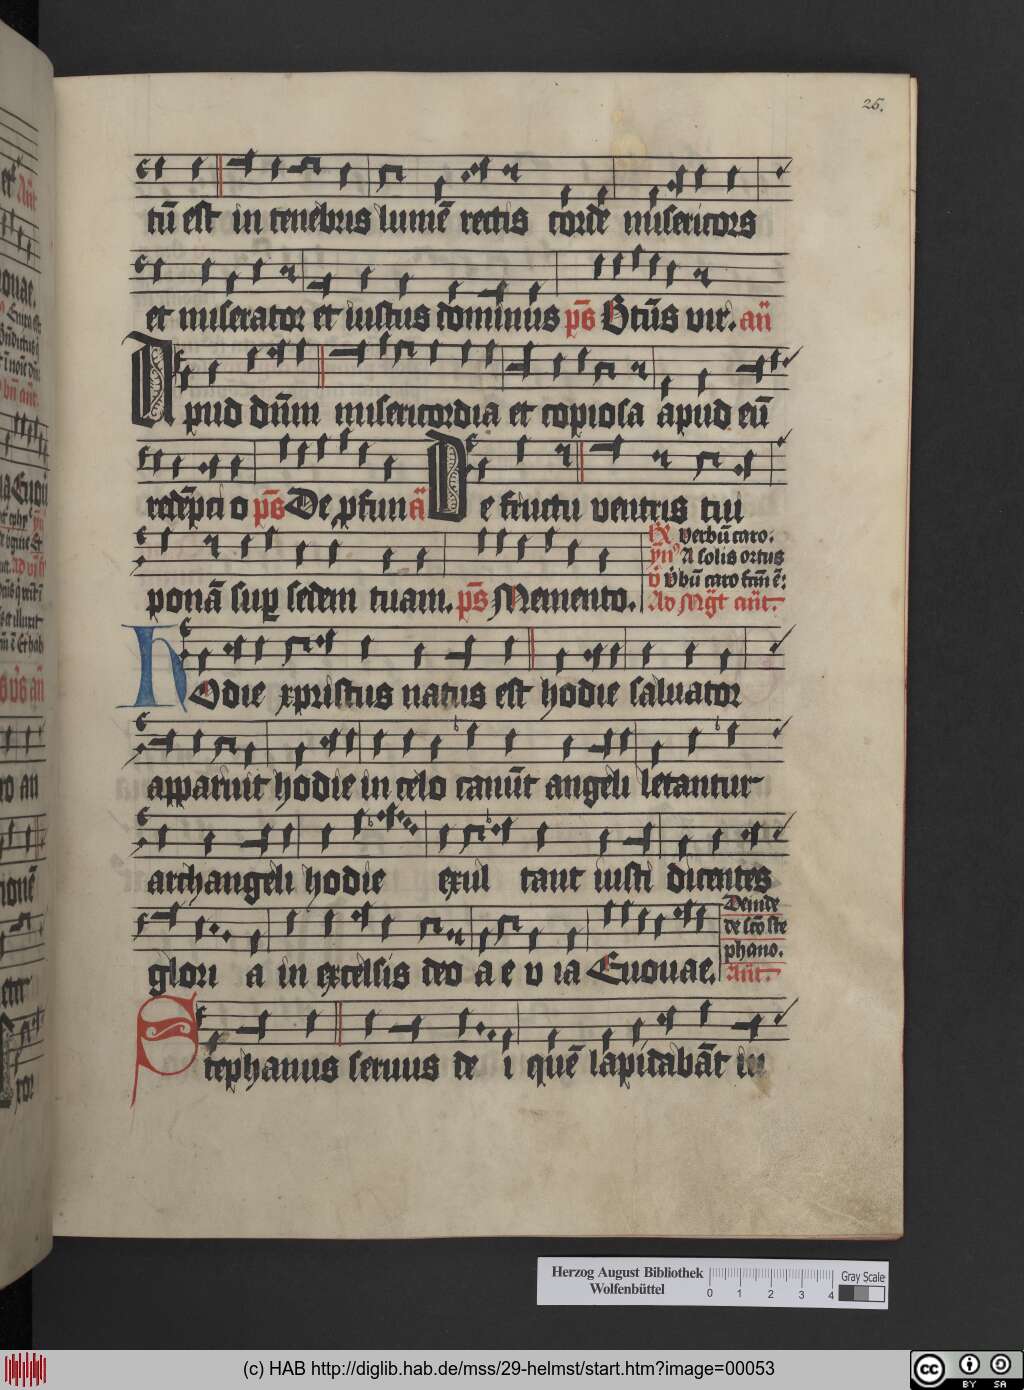 25.
tū est in tenebris lumē rectis corde misericors
et miserator et iustus dominus ps̄ Btūs vir. an̄
Apud dn̄m misericordia et copiosa apud eū
redēpci o ps̄ De pfun a̅ De fructu ventris tui
ponā sup sedem tuam. ps̄ Memento.
Verbū caro.
A solis ortus
Vbū caro fcm̄ ē:
Ad Mg̅t an̄t.
Hodie xpristus natus est hodie saluator
apparuit hodie in celo canūt angeli letantur
archangeli hodie exul tant iusti dicentes
glori a in excelsis deo a e v ia Euouae.
Deinde
de scō ste
phano.
An̄t.
Stephanus seruus de i quē lapidabāt iu
Herzog August Bibliothek
Wolfenbüttel
0 1 2 3 4
Gray Scale
(c) HAB http://diglib.hab.de/mss/29-helmst/start.htm?image=00053
cc BY SA